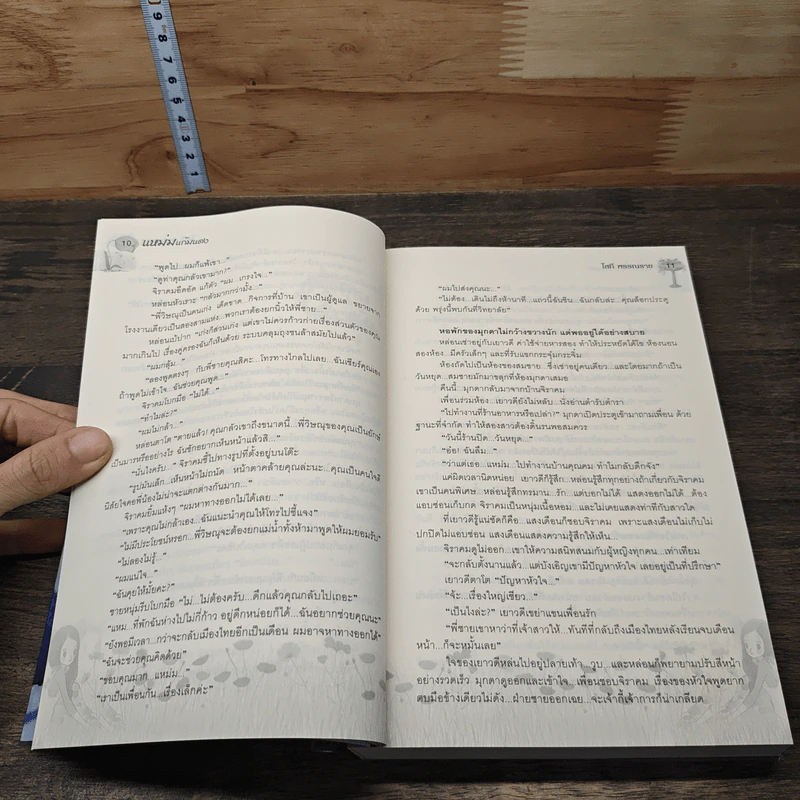 9
8
7
6
5
4
3
2
1
10
แหม่มแก้มแดง
"พูดไป...ผมก็แพ้เขา..."
"ดูท่าคุณกลัวเขามาก?"
จิราคมอึดอัด แก้ตัว "ผม...เกรงใจ..."
หล่อนหัวเราะ "กลัวมากกว่ามั้ง..."
"พี่วิษณุเป็นคนเก่ง เด็ดขาด กิจการที่บ้าน เขาเป็นผู้ดูแล ขยายจาก
โรงงานเดียวเป็นสองสามแห่ง...พวกเราต้องยกนิ้วให้พี่ชาย..."
หล่อนเบ้ปาก "เก่งก็ส่วนเก่ง แต่เขาไม่ควรก้าวก่ายเรื่องส่วนตัวของคุณ
มากเกินไป เรื่องคู่ครองฉันก็เห็นด้วย ระบบคลุมถุงชนล้าสมัยไปแล้ว"
"ผมกลุ้ม..."
"ลองพูดตรงๆ กับพี่ชายคุณสิคะ...โทรทางไกลไปเลย...ฉันเชียร์คุณเอง
ถ้าพูดไม่เข้าใจ...ฉันช่วยคุณพูด..."
จิราคมโบกมือ "ไม่ได้..."
"ทำไมล่ะ?"
"ผมไม่กล้า..."
หล่อนตาโต "ตายแล้ว! คุณกลัวเขาถึงขนาดนี้...พี่วิษณุของคุณเป็นยักษ์
เป็นมารหรืออย่างไร ฉันชักอยากเห็นหน้าแล้วสิ..."
"นั่นไงครับ..." จิราคมชี้ไปทางรูปที่ตั้งอยู่บนโต๊ะ
"รูปมันเล็ก...เห็นหน้าไม่ถนัด หน้าตาคล้ายคุณล่ะนะ...คุณเป็นคนใจดี
นิสัยใจคอพี่น้องไม่น่าจะแตกต่างกันมาก..."
จิราคมยิ้มแห้งๆ "ผมหาทางออกไม่ได้เลย..."
"เพราะคุณไม่กล้าเอง...ฉันแนะนำคุณให้โทรไปชี้แจง"
"ไม่มีประโยชน์หรอก...พี่วิษณุจะต้องยกแม่น้ำทั้งห้ามาพูดให้ผมยอมรับ"
"ไม่ลองไม่รู้..."
"ผมแน่ใจ..."
"ฉันคุยให้มั้ยคะ?"
ชายหนุ่มรีบโบกมือ "ไม่...ไม่ต้องครับ...ดึกแล้วคุณกลับไปเถอะ"
"แหม...ที่พักฉันห่างไปไม่กี่ก้าว อยู่ดึกหน่อยก็ได้...ฉันอยากช่วยคุณนะ"
"ยังพอมีเวลา...กว่าจะกลับเมืองไทยอีกเป็นเดือน ผมอาจหาทางออกได้"
"ฉันจะช่วยคุณคิดด้วย"
"ขอบคุณมาก...แหม่ม..."
"เราเป็นเพื่อนกัน...เรื่องเล็กค่ะ"
โสภี พรรณราย
11
"ผมไปส่งคุณนะ..."
"ไม่ต้อง...เดินไม่ถึงห้านาที...แถวนี้ฉันชิน...ฉันกลับล่ะ...คุณล็อกประตู
ด้วย พรุ่งนี้พบกันที่วิทยาลัย"
หอพักของมุกดาไม่กว้างขวางนัก แต่พออยู่ได้อย่างสบาย
หล่อนเช่าอยู่กับเยาวดี ค่าใช้จ่ายหารสอง ทำให้ประหยัดได้โข ห้องนอน
สองห้อง...มีครัวเล็กๆ และที่รับแขกกระจุ๋มกระจิ๋ม
ห้องถัดไปเป็นห้องของสมชาย...ซึ่งเช่าอยู่คนเดียว...และโดยมากถ้าเป็น
วันหยุด...สมชายมักมาขลุกที่ห้องมุกดาเสมอ
คืนนี้...มุกดากลับมาจากบ้านจิราคม
เพื่อนร่วมห้อง...เยาวดียังไม่หลับ...นั่งอ่านตำรับตำรา
"ไปทำงานที่ร้านอาหารหรือเปล่า?" มุกดาเปิดประตูเข้ามาถามเพื่อน ด้วย
ฐานะที่จำกัด ทำให้สองสาวต้องดิ้นรนพอสมควร
"วันนี้ร้านปิด...วันหยุด..."
"อ้อ! ฉันลืม..."
"ว่าแต่เธอ...แหม่ม...ไปทำงานบ้านคุณคม ทำไมกลับดึกจัง"
แค่ผิดเวลานิดหน่อย เยาวดีก็รู้สึก...หล่อนรู้สึกทุกอย่างถ้าเกี่ยวกับจิราคม
เขาเป็นคนพิเศษ...หล่อนรู้สึกทรมาน...รัก...แต่บอกไม่ได้ แสดงออกไม่ได้...ต้อง
แอบซ่อนเก็บกด จิราคมเป็นหนุ่มเนื้อหอม...และไม่เคยแสดงท่าทีกับสาวใด
ที่เยาวดีรู้แน่ชัดก็คือ...แสงเดือนก็ชอบจิราคม เพราะแสงเดือนไม่เก็บไม่
ปกปิดไม่แอบซ่อน แสงเดือนแสดงความรู้สึกให้เห็น...
จิราคมดูไม่ออก...เขาให้ความสนิทสนมกับผู้หญิงทุกคน...เท่าเทียม
"จะกลับตั้งนานแล้ว...แต่บังเอิญเขามีปัญหาหัวใจ เลยอยู่เป็นที่ปรึกษา"
เยาวดีตาโต "ปัญหาหัวใจ..."
"จ้ะ...เรื่องใหญ่เชียว..."
"เป็นไงล่ะ?" เยาวดีเขย่าแขนเพื่อนรัก
"พี่ชายเขาหาว่าที่เจ้าสาวให้...ทันทีที่กลับถึงเมืองไทยหลังเรียนจบเดือน
หน้า...ก็จะหมั้นเลย"
ใจของเยาวดีหล่นไปอยู่ปลายเท้า...วูบ...และหล่อนก็พยายามปรับสีหน้า
อย่างรวดเร็ว มุกดาดูออกและเข้าใจ...เพื่อนชอบจิราคม เรื่องของหัวใจพูดยาก
ตบมือข้างเดียวไม่ดัง...ฝ่ายชายออกเฉย...จะเจ้ากี้เจ้าการก็น่าเกลียด